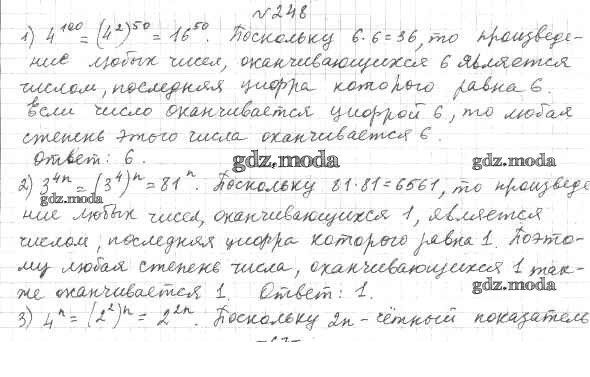 №248
1) 4^100 = (4^2)^50 = 16^50. Поскольку 6·6=36, то произведе-
ние любых чисел, оканчивающихся 6 является
числом, последняя цифра которого равна 6.
Если число оканчивается цифрой 6, то любая
степень этого числа оканчивается 6.
Ответ: 6.
gdz.moda
gdz.moda
2) 3^4n = (3^4)^n = 81^n. Поскольку 81·81=6561, то произведе
gdz.moda
ние любых чисел, оканчивающихся 1, является
числом, последняя цифра которого равна 1. Поэто-
му любая степень числа, оканчивающихся 1 так-
же оканчивается 1. Ответ: 1.
gdz.moda
gdz.moda
3) 4^n = (2^2)^n = 2^2n. Поскольку 2n - чётный показатель